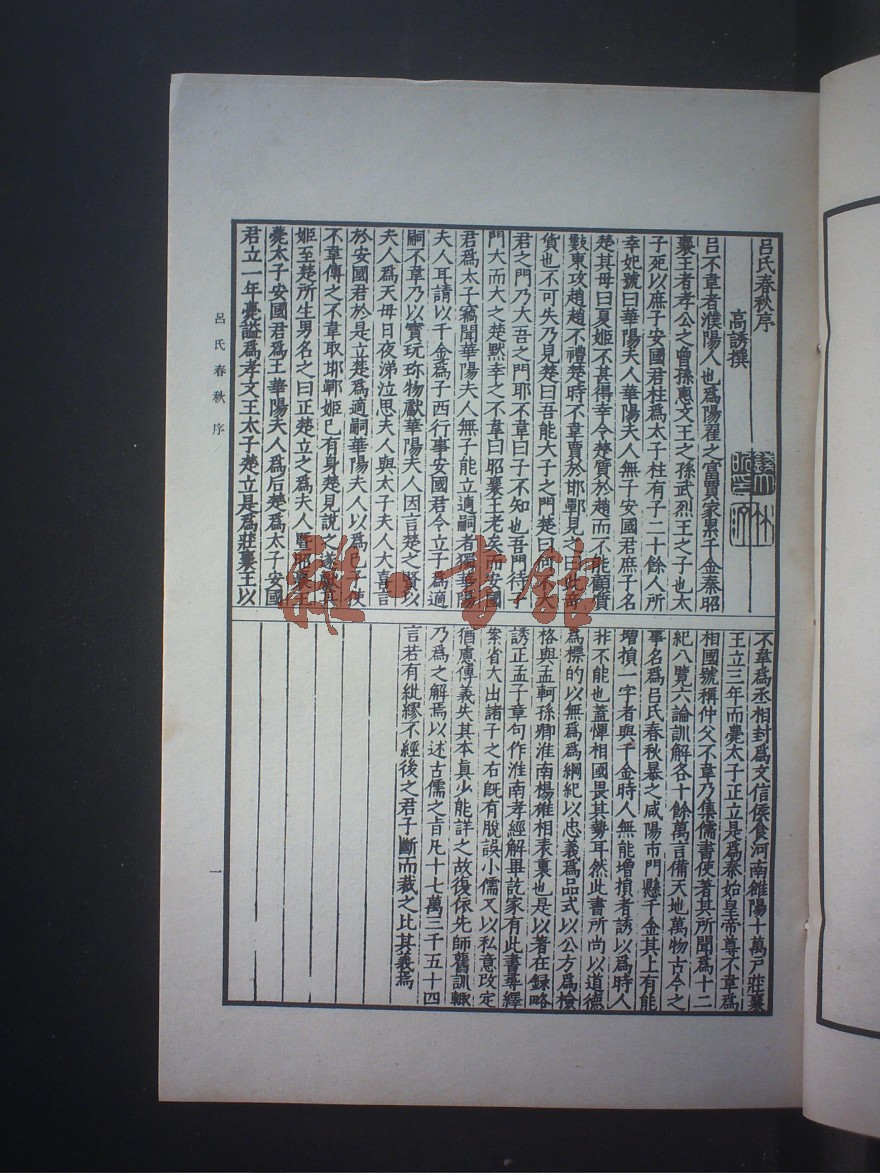 呂氏春秋序
高誘撰
呂不韋者濮陽人也爲陽翟之富賈家累千金秦昭
襄王者孝公之曾孫惠文王之孫武烈王之子也太
子死以庶子安國君柱爲太子柱有子二十餘人所
幸妃號曰華陽夫人華陽夫人無子安國君庶子名
楚其母曰夏姬不甚得幸令楚質於趙而不能顧質
數東攻趙趙不禮楚時不韋賈於邯鄲見之曰此奇
貨也不可失乃見楚曰吾能大子之門楚曰何不大
君之門乃大吾之門耶不韋曰子不知也吾門待子
門大而大之楚默幸之不韋曰昭襄王老矣而安國
君爲太子竊聞華陽夫人無子能立適嗣者獨華陽
夫人耳請以千金爲子西行事安國君令立子爲適
嗣不韋乃以寶玩珍物獻華陽夫人因言楚之賢以
夫人爲天母日夜涕泣思夫人與太子夫人大喜言
於安國君於是立楚爲適嗣華陽夫人以爲己子使
不韋傳之不韋取邯鄲姬已有身楚見說之遂獻其
姬至楚所生男名之曰正楚立之爲夫人暨昭襄王
薨太子安國君爲王華陽夫人爲后楚爲太子安國
君立一年薨謚爲孝文王太子楚立是爲莊襄王以
不韋爲丞相封爲文信侯食河南雒陽十萬戶莊襄
王立三年而薨太子正立是爲秦始皇帝尊不韋爲
相國號稱仲父不韋乃集儒書使著其所聞爲十二
紀八覽六論訓解各十餘萬言備天地萬物古今之
事名爲呂氏春秋暴之咸陽市門懸千金其上有能
增損一字者與千金時人無能增損者誘以爲時人
非不能也蓋憚相國畏其勢耳然此書所尚以道德
爲標的以無爲爲綱紀以忠義爲品式以公方爲檢
格與孟軻孫卿淮南楊雄相表裏也是以著在錄略
誘正孟子章句作淮南孝經解畢訖家有此書尋繹
案省大出諸子之右既有脫誤小儒又以私意改定
猶慮傳義失其本真少能詳之故復依先師舊訓輒
乃爲之解焉以述古儒之旨凡十七萬三千五十四
言若有紕繆不經後之君子斷而裁之比其義焉
呂氏春秋序
一
雜·書館